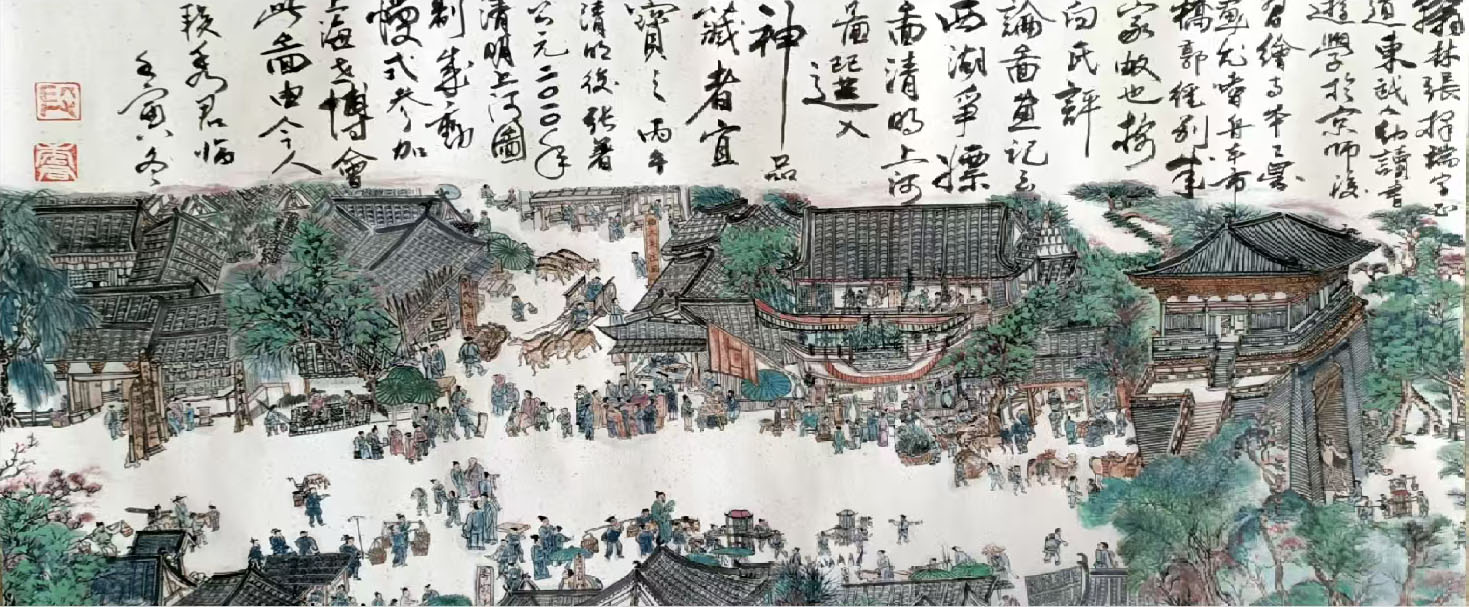 翰林張擇端字正
道東武人幼讀書
遊學於京師後
習繪事本工其
界畫尤嗜舟車市
橋郭徑別成
家數也按
向氏評
論圖畫記云
西湖爭標
圖清明上河
圖選入
神品
藏者宜
寶之丙午
清明後張著
公元二〇一〇年
清明上河圖
制成動
漫式參加
上海世博會
此圖由今人
段秀君臨
壬寅冬